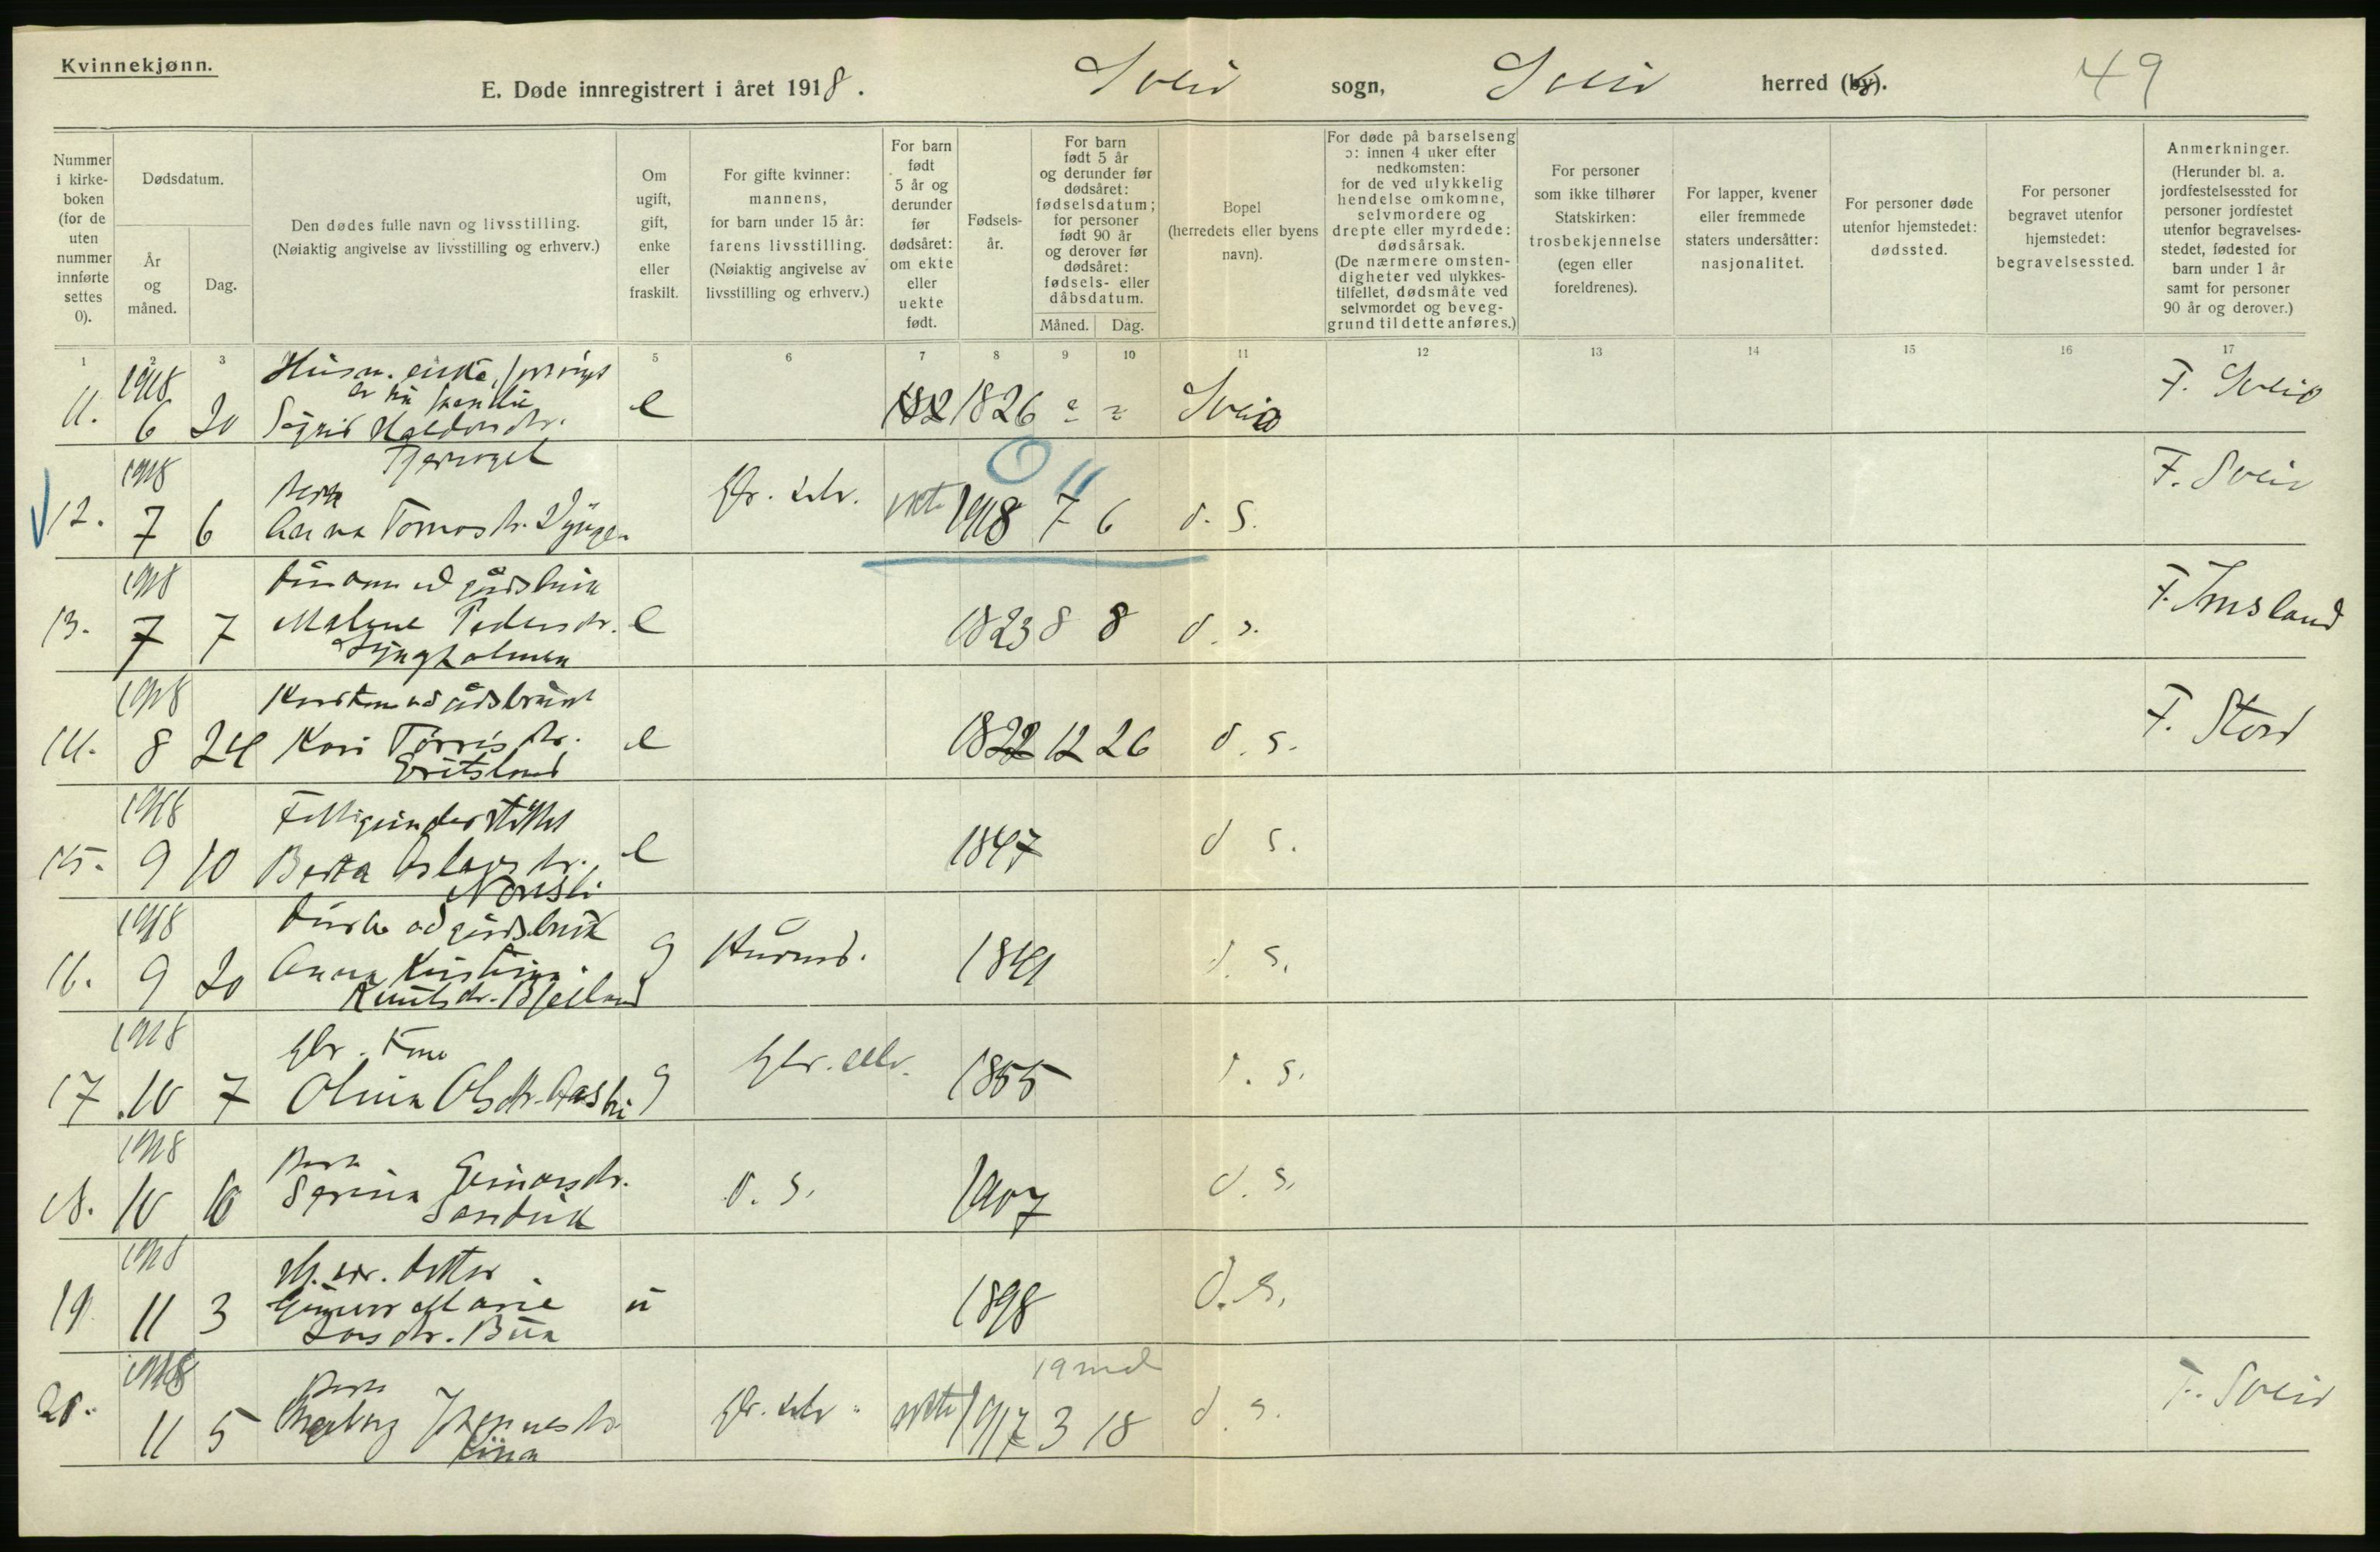 Kvinnekjønn.
E. Døde innregistrert i året 1918. Sveio sogn, Sveio herred (by). 49
Nummer i kirke-boken (for de uten nummer innførte settes 0).
Dødsdatum.
År og måned.
Dag.
Den dødes fulle navn og livsstilling. (Nøiaktig angivelse av livsstilling og erhverv.)
Om ugift, gift, enke eller fraskilt.
For gifte kvinner: mannens, for barn under 15 år: farens livsstilling. (Nøiaktig angivelse av livsstilling og erhverv.)
For barn født 5 år og derunder før dødsåret: om ekte eller uekte født.
Fødsels-år.
For barn født 5 år og derunder før dødsåret: fødselsdatum; for personer født 90 år og derover før dødsåret: fødsels- eller dåbsdatum.
Måned. Dag.
Bopel (herredets eller byens navn).
For døde på barselseng ɔ: innen 4 uker efter nedkomsten: for de ved ulykkelig hendelse omkomne, selvmordere og drepte eller myrdede: dødsårsak. (De nærmere omsten-digheter ved ulykkes-tilfellet, dødsmåte ved selvmordet og beveg-grund til dette anføres.)
For personer som ikke tilhører Statskirken: trosbekjennelse (egen eller foreldrenes).
For lapper, kvener eller fremmede staters undersåtter: nasjonalitet.
For personer døde utenfor hjemstedet: dødssted.
For personer begravet utenfor hjemstedet: begravelsessted.
Anmerkninger. (Herunder bl. a. jordfestelsessted for personer jordfestet utenfor begravelses-stedet, fødested for barn under 1 år samt for personer 90 år og derover.)
1 2 3 5 6 7 8 9 10 11 12 13 14 15 16 17
1918 Husm. enke, forsørget
11. 6 20 Sigrid Haldorsdr. e 1826 Sveio F. Sveio
Tjernagel
1918 Barn
12. 7 6 Anna Tomasdr. Gbr. selv. ekte 1918 7 6 d. s. F. Sveio
1918
13. 7 7 Malene Pedersdr. e 1823 8 8 d. s. F. Imsland
Lyngholmen
1918
14. 8 24 Kari Torrisdr. e 1822 12 26 d. s. F. Stord
1918 Fattigunderstøttet
15. 9 10 Berta Aslagsdr. e 1847 d. s.
1918
16. 9 20 Anna Kristina g d. s.
Knutsdr. Bjelland
1918 Gbr. kone
17. 10 7 Olina Olsdr. g Gbr. selv. 1855 d. s.
1918 Barn
18. 10 10 Serina d. s. 1907 d. s.
Sandvik
1918
19. 11 3 Marie u 1898 d. s.
Larsdr. Bua
1918 Barn 19 md
20. 11 5 Ingeborg Johannesdr. Gbr. selv ekte 1917 3 18 d. s. F. Sveio